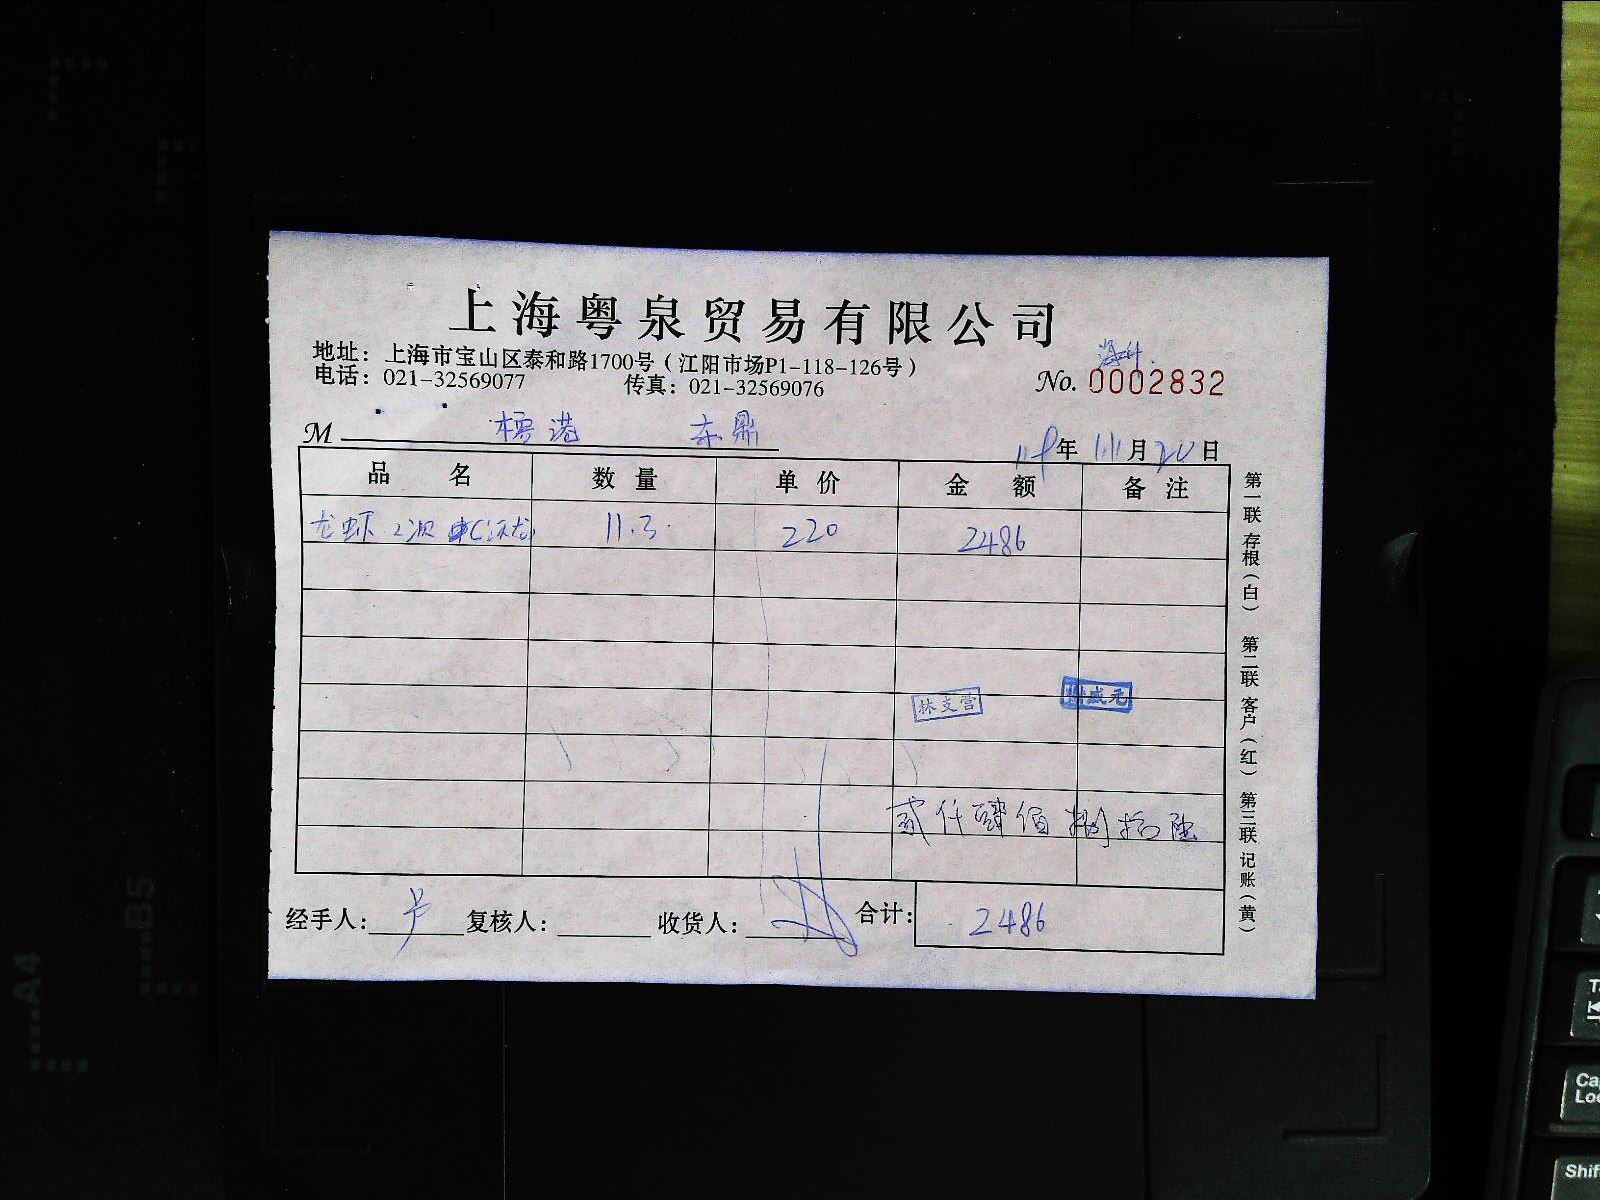 上海粤泉贸易有限公司
地址：上海市宝山区泰和路1700号（江阳市场P1-118-126号）
电话：021-32569077 传真：021-32569076
No. 0002832
M 港 东鼎
年 11月20日
品名 数量 单价 金额 备注
龙虾 2次 11.3 220 2486
林支营
威元
贰仟肆佰捌拾陆
经手人： 复核人： 收货人： 合计： 2486
第一联 存根（白） 第二联 客户（红） 第三联 记账（黄）
B5
A4
Shif